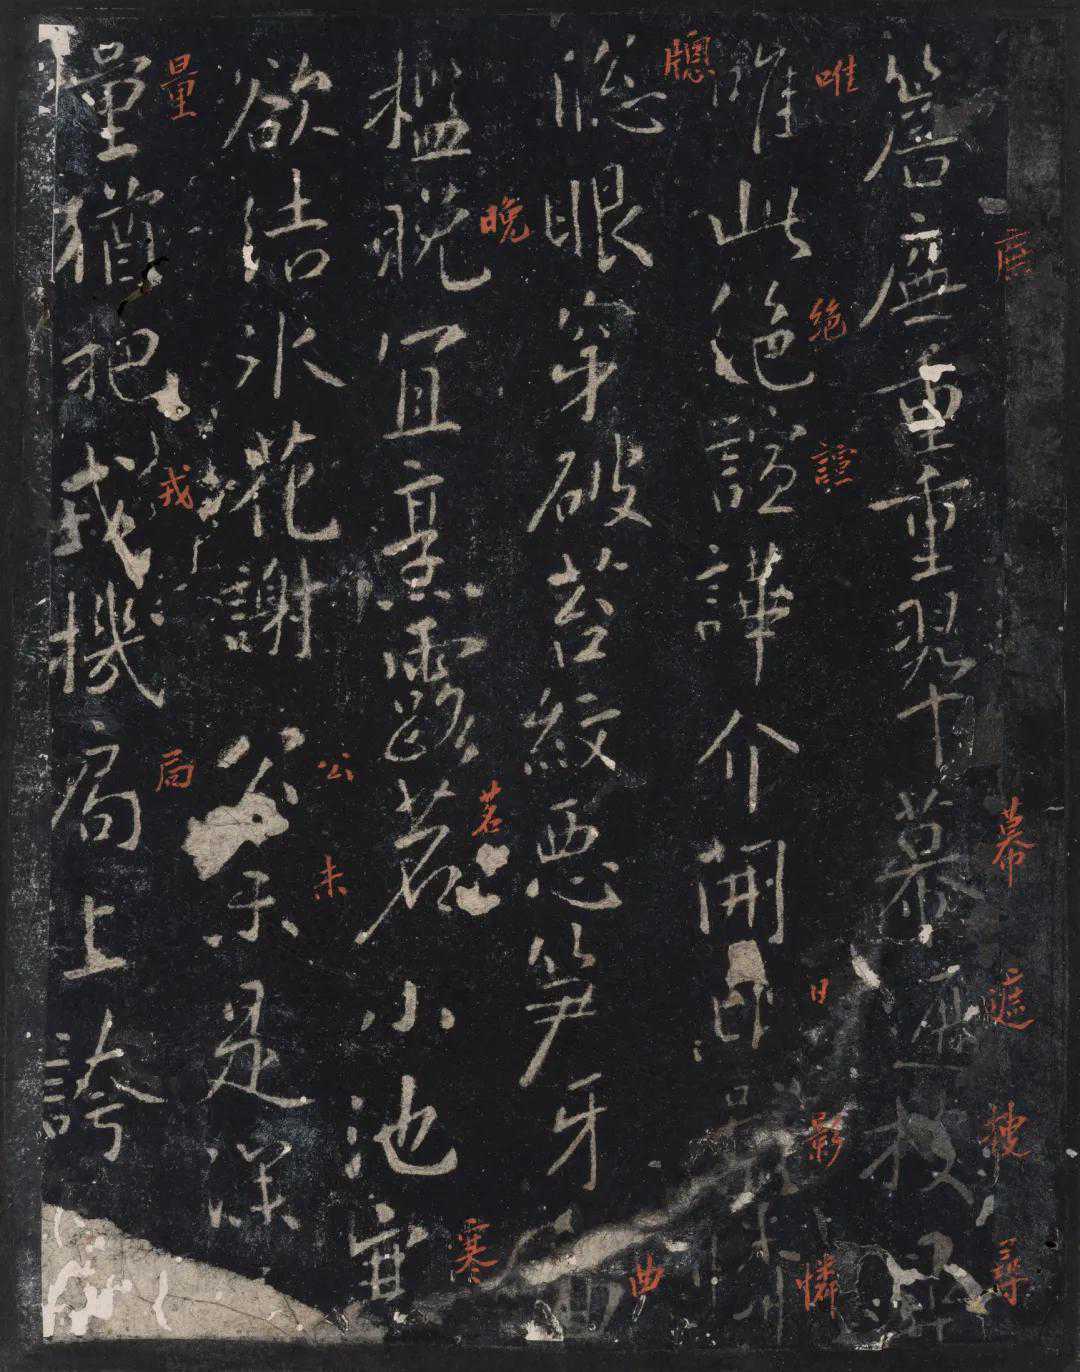 簷重重翠幕遮搜尋
幕遮搜尋
唯此絕諠譁介開日影憐
唯絕諠日影憐
牕眼穿破苔紋惡笋牙曲
牕曲
檻晚宜烹露茗小池寒
晚茗寒
欲結氷花謝公未是深
公未
量猶把戎機局上誇
量戎局